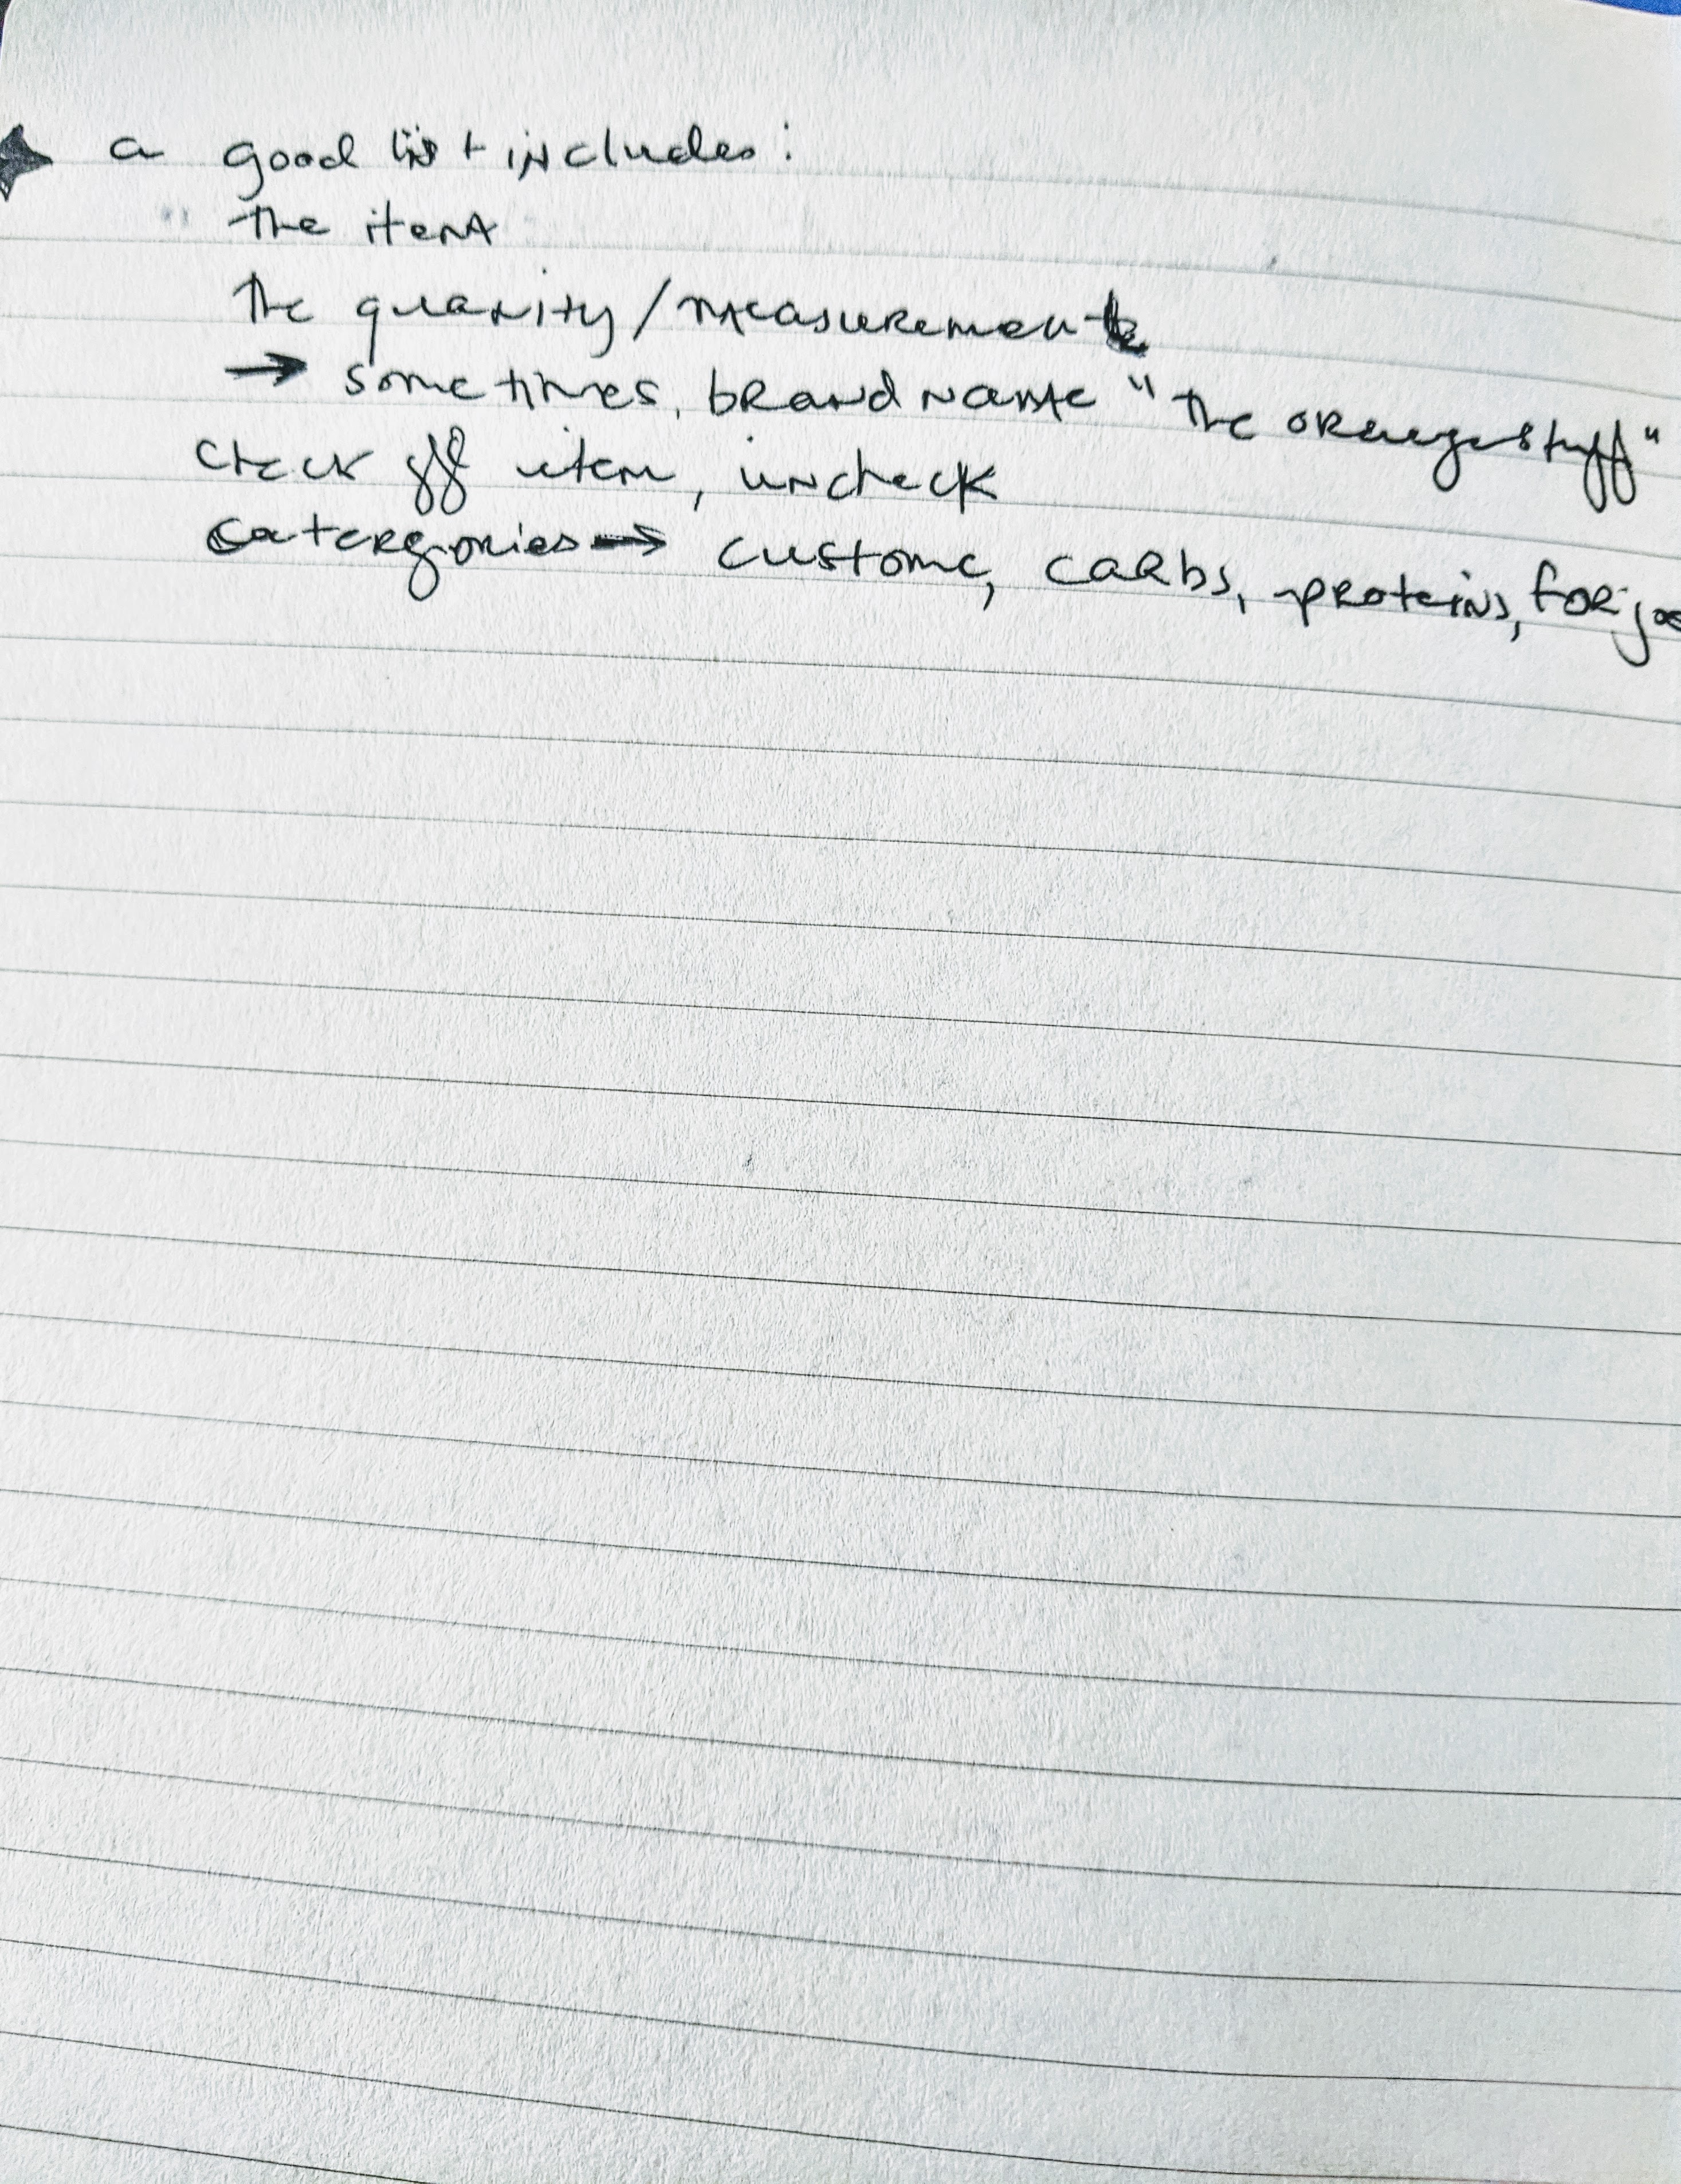 a good list includes:
the item
the quanity/measurement
→ sometimes, brand name "the orange stuff"
check off item, uncheck
catergories → custome, carbs, proteins, for